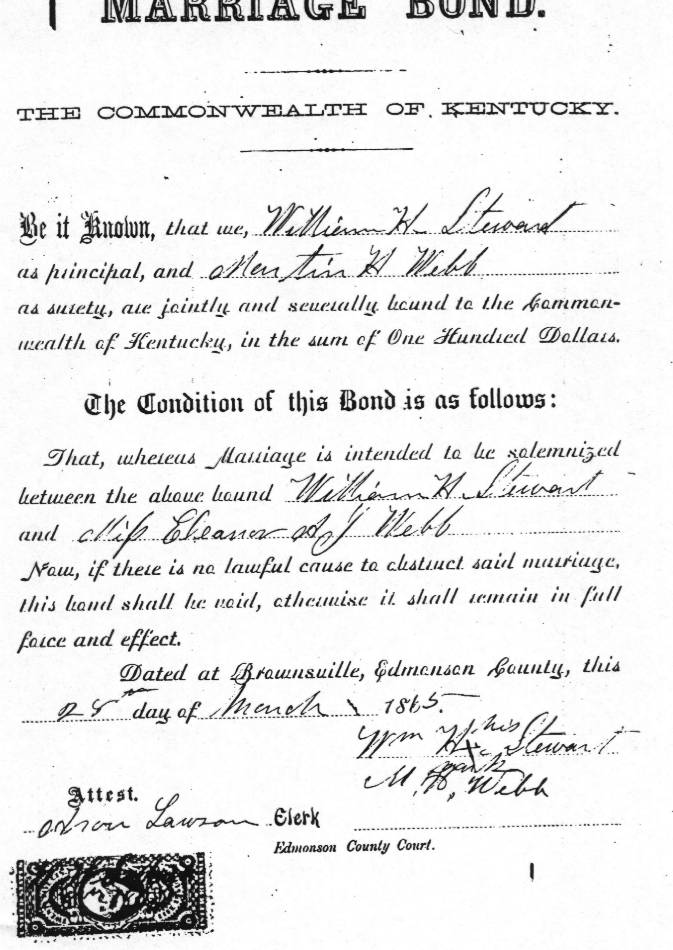 MARRIAGE BOND.
THE COMMONWEALTH OF KENTUCKY.
Be it Known, that we, William H. Stewart
as principal, and Martin H Webb
as surety, are jointly and severally bound to the Common-
wealth of Kentucky, in the sum of One Hundred Dollars.
The Condition of this Bond is as follows:
That, whereas Marriage is intended to be solemnized
between the above bound William H. Stewart
and Miss Eleanor A J Webb
Now, if there is no lawful cause to obstruct said marriage,
this bond shall be void, otherwise it shall remain in full
force and effect.
Dated at Brownsville, Edmonson County, this
28 day of March 1865.
Wm H his Stewart
mark
M. H. Webb
Attest.
Lawson Clerk
Edmonson County Court.